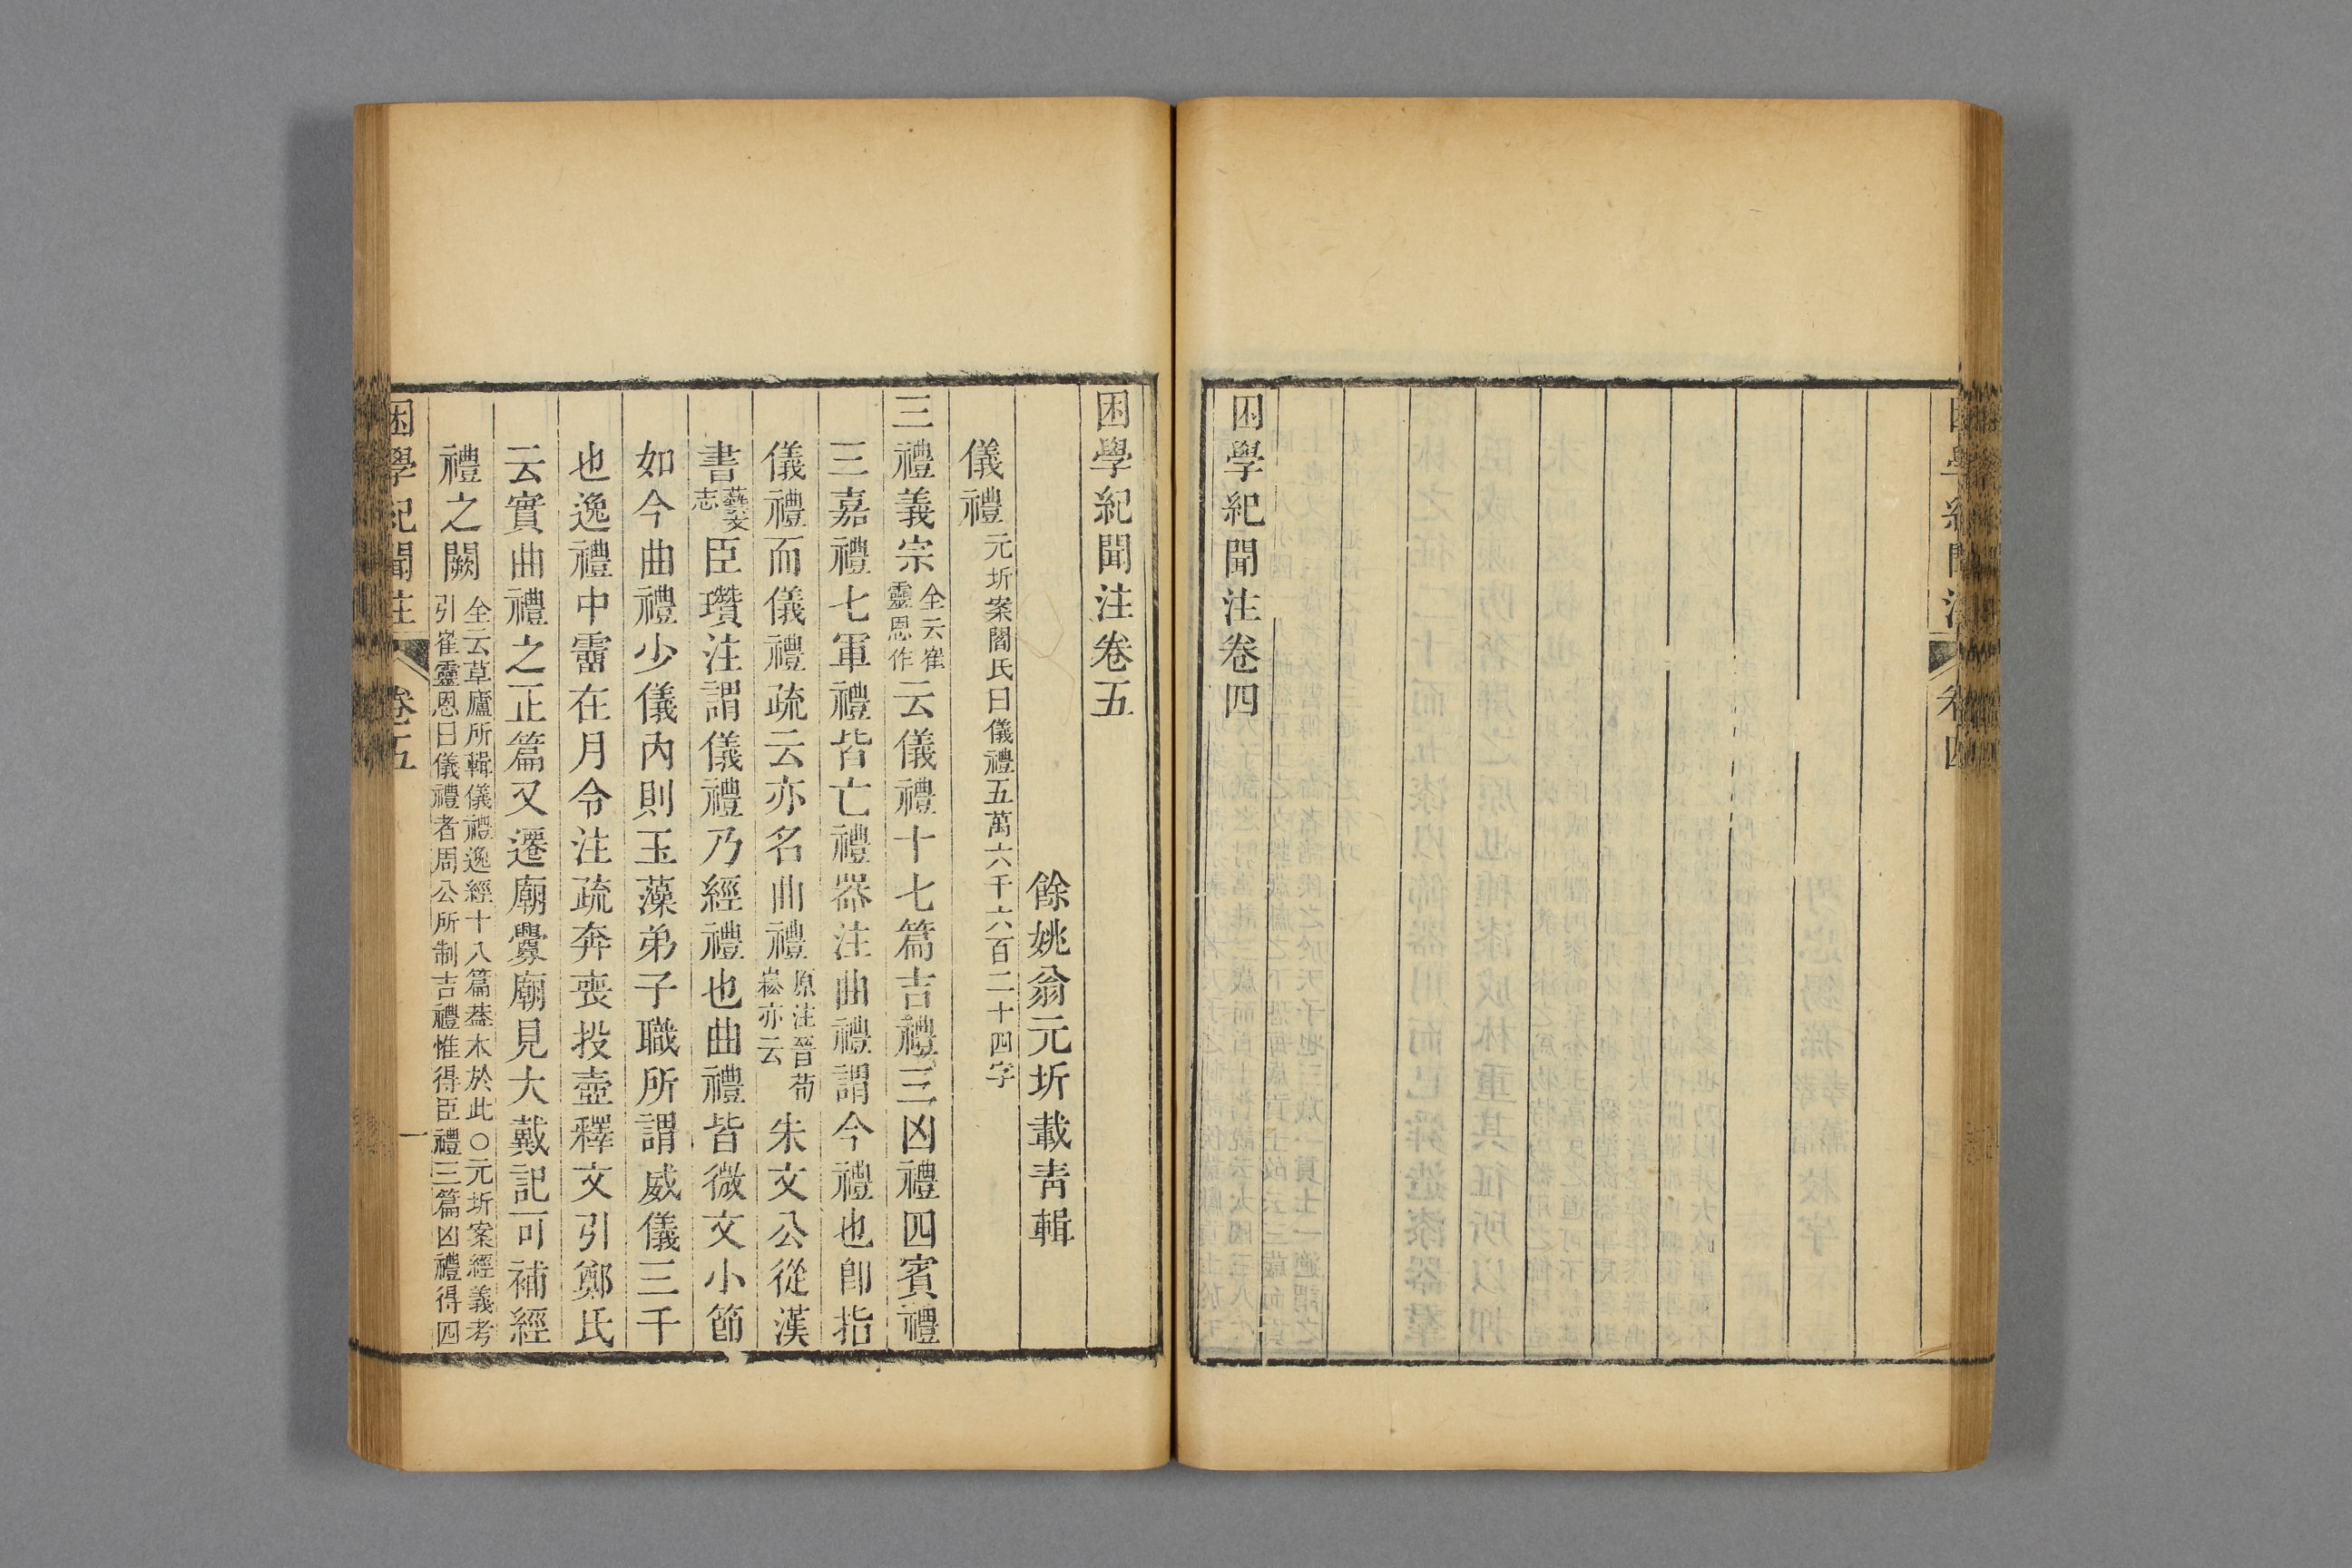 困學紀聞注卷四
困學紀聞注卷五
餘姚翁元圻載青輯
儀禮元圻案閻氏曰儀禮五萬六千六百二十四字
三禮義宗全云崔靈恩作云儀禮十七篇吉禮三凶禮四賓禮
三嘉禮七軍禮皆亡禮器注曲禮謂今禮也卽指
儀禮而儀禮疏云亦名曲禮原注晉荀崧亦云朱文公從漢
書藝文志臣瓚注謂儀禮乃經禮也曲禮皆微文小節
如今曲禮少儀內則玉藻弟子職所謂威儀三千
也逸禮中霤在月令注疏奔喪投壺釋文引鄭氏
云實曲禮之正篇又遷廟釁廟見大戴記可補經
禮之闕全云草廬所輯儀禮逸經十八篇葢本於此○元圻案經義考引崔靈恩曰儀禮者周公所制吉禮惟得臣禮三篇凶禮得四
困學紀聞注 卷五 一